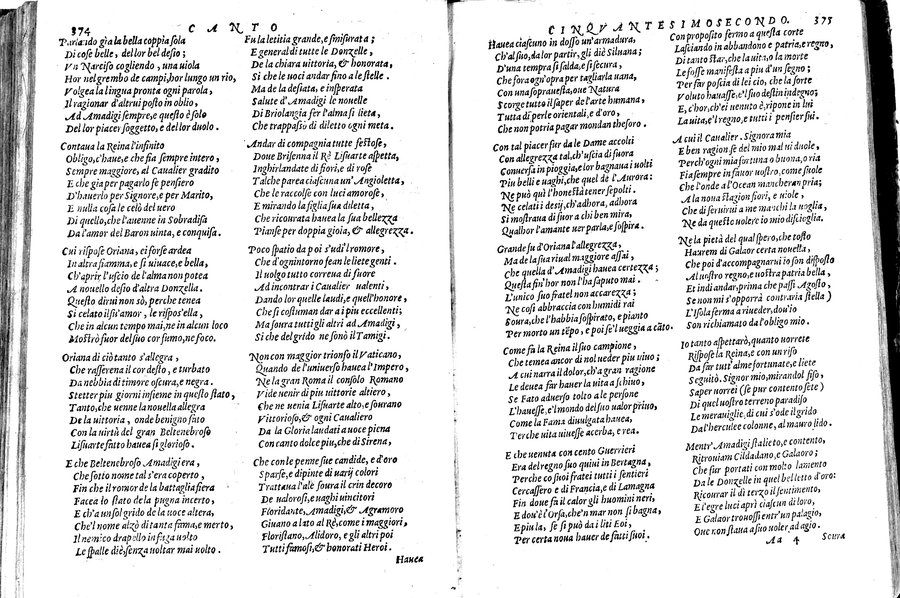 374 CANTO
Parlando gia la bella coppia sola
Di cose belle, del lor bel desio;
Vn Narciso cogliendo, una uiola
Hor nel grembo de campi, hor lungo un rio,
Volgea la lingua pronta ogni parola,
Il ragionar d'altrui posto in oblio,
Ad Amadigi sempre, e questo è solo
Del lor piacer soggetto, e del lor duolo.
Contaua la Reina l'infinito
Obligo, c'haue, e che fia sempre intero,
Sempre maggiore, al Caualier gradito
E che gia per pagarlo fe pensiero
D'hauerlo per Signore, e per Marito,
E nulla cosa le celò del uero
Di quello, che l'auenne in Sobradisa
Da l'amor del Baron uinta, e conquisa.
Cui rispose Oriana, e i forse ardea
In altra fiamma, e si uiuace, e bella,
Ch'aprir l'uscio de l'alma non potea
A nouello desio d'altra Donzella.
Questo dirui non sò, perche tenea
Si celato il su'amor, le rispos'ella,
Che in alcun tempo mai, ne in alcun loco
Mostrò fuor del suo cor fumo, ne foco.
Oriana di ciò tanto s'allegra,
Che rasserena il cor desto, e turbato
Da nebbia di timore oscura, e negra.
Stetter piu giorni insieme in questo stato,
Tanto, che uenne la nouella allegra
De la uittoria, onde benigno fato
Con la uirtù del gran Beltenebroso
Lisuarte fatto hauea si glorioso.
E che Beltenebroso Amadigi era,
Che sotto nome tal s'era coperto,
Fin che il romor de la battaglia fiera
Facea lo stato de la pugna incerto,
E ch'a un sol grido de la uoce altera,
Che'l nome alzò di tanta fama, e merto,
Il nemico drapello in fuga uolto
Le spalle diè, senza uoltar mai uolto.
Fu la letitia grande, e smisurata;
E general di tutte le Donzelle,
De la chiara uittoria, & honorata,
Si che le uoci andar fino a le stelle.
Ma de la desiata, e insperata
Salute d'Amadigi le nouelle
Di Briolangia fer l'alma si lieta,
Che trappassò di diletto ogni meta.
Andar di compagnia tutte festose,
Doue Brisenna il Rè Lisuarte aspetta,
Inghirlandate di fiori, e di rose
Tal che parea ciascuna un'Angioletta,
Che le raccolse con luci amorose,
E mirando la figlia sua diletta,
Che ricourata hauea la sua bellezza
Pianse per doppia gioia, & allegrezza.
Poco spatio da poi s'udì'l romore,
Che d'ogn'intorno fean le liete genti.
Il uolgo tutto correua di fuore
Ad incontrar i Caualier ualenti,
Dando lor quelle laudi, e quell'honore,
Che si costuman dar a i piu eccellenti;
Ma soura tutti gli altri ad Amadigi,
Si che del grido ne sonò il Tamigi.
Non con maggior trionfo il Vaticano,
Quando de l'uniuerso hauea l'Impero,
Ne la gran Roma il consolo Romano
Vide uenir di piu uittorie altiero,
Che ne uenia Lisuarte alto, e sourano
Vittorioso, & ogni Caualiero
Da la Gloria laudati a uoce piena
Con canto dolce piu, che di Sirena,
Che con le penne sue candide, e d'oro
Sparse, e dipinte di uarij colori
Trattaua l'ale soura il crin decoro
De ualorosi, e uaghi uincitori
Floridante, Amadigi, & Agramoro
Giuano a lato al Rè, come i maggiori,
Floristano, Alidoro, e gli altri poi
Tutti famosi, & honorati Heroi.
Hauea
CINQVANTESIMOSECONDO. 375
Hauea ciascuno in dosso un'armadura,
Ch'al suo, da lor partir, gli diè Siluana;
D'una tempra si salda, e si sicura,
Che fora ogn'opra per tagliarla uana,
Con una soprauesta, oue Natura
Scorge tutto il saper de l'arte humana,
Tutta di perle orientali, e d'oro,
Che non potria pagar mondan thesoro.
Con tal piacer fur da le Dame accolti
Con allegrezza tal, ch'uscia di fuora
Conuersa in pioggia, e lor bagnaua i uolti
Piu belli e uaghi, che quel de l'Aurora:
Ne può quì l'honestà tener sepolti.
Ne celati i desij, ch'adhora, adhora
Si mostraua di fuor a chi ben mira,
Qualhor l'amante uer parla, e sospira.
Grande fu d'Oriana l'allegrezza,
Ma de la sua riual maggiore assai,
Che quella d'Amadigi hauea certezza;
Questa fin'hor non l'ha saputo mai.
L'unico suo fratel non accarezza;
Ne così abbraccia con humidi rai
Soura, che l'habbia sospirato, e pianto
Per morto un tẽpo, e poi se'l ueggia a càto.
Come fa la Reina il suo campione,
Che temea ancor di nol ueder piu uiuo;
A cui narra il dolor, ch'a gran ragione
Le deuea far hauer la uita a schiuo,
Se Fato aduerso tolto a le persone
L'hauesse, e'l mondo del suo ualor priuo,
Come la Fama diuulgata hauea,
Ter che uita uiuesse acerba, e rea.
E che uenuta con cento Guerrieri
Era del regno suo quiui in Bertagna,
Perche co suoi fratei tutti i sentieri
Cercassero e di Francia, e di Lamagna
Fin doue fa il calor gli huomini neri,
E dou'è l'Orsa, che'n mar non si bagna,
E piu la, se si può da i liti Eoi,
Per certa noua hauer de fatti suoi.
Con proposito fermo a questa corte
Lasciando in abbandono e patria, e regno,
Di tanto star, che la uita, o la morte
Le fosse manifesta a piu d'un segno;
Per far poscia di lei cio, che la sorte
Voluto hauesse, e'l suo destin indegno;
E, c'hor, ch'ei uenuto è, ripone in lui
La uita, e'l regno, e tutti i pensier sui.
A cui il Caualier. Signora mia
E ben ragion se del mio mal ui duole,
Perch'ogni mia fortuna o buona, o ria
Fia sempre in fauor uostro, come suole
Che l'onde a l'Ocean mancheran pria;
A la noua stagion fiori, e uiole,
Che di seruirui a me manchi la uoglia,
Ne da questo uolere io mi discioglia.
Ne la pietà del qual spero, che tosto
Haurem di Galaor certa nouella,
Che poi d'accompagnarui io son disposto
Al uostro regno, e uostra patria bella,
Et indi andar, prima che passi Agosto,
Se non mi s'opporrà contraria stella)
L'Isola ferma a riueder, dou'io
Son richiamato da l'obligo mio.
Io tanto aspettarò, quanto uorrete
Rispose la Reina, e con un riso
Da far tutt'alme fortunate, e liete
Seguitò. Signor mio, mirandol fiso,
Saper uorrei (se pur contento sete)
Di quel uostro terreno paradiso
Le merauiglie, di cui s'ode il grido
Dal'herculee colonne, al mauro lido.
Mentr'Amadigi sta lieto, e contento,
Ritrouiam Cildadano, e Galaoro;
Che fur portati con molto lamento
Da le Donzelle in quel belletto d'oro:
Ricourar il dì terzo il sentimento,
E l'egre luci aprì ciascun di loro,
E Galaor trouossi entr'un palagio,
Oue non staua a suo uoler ad agio.
Aa 4 Scura